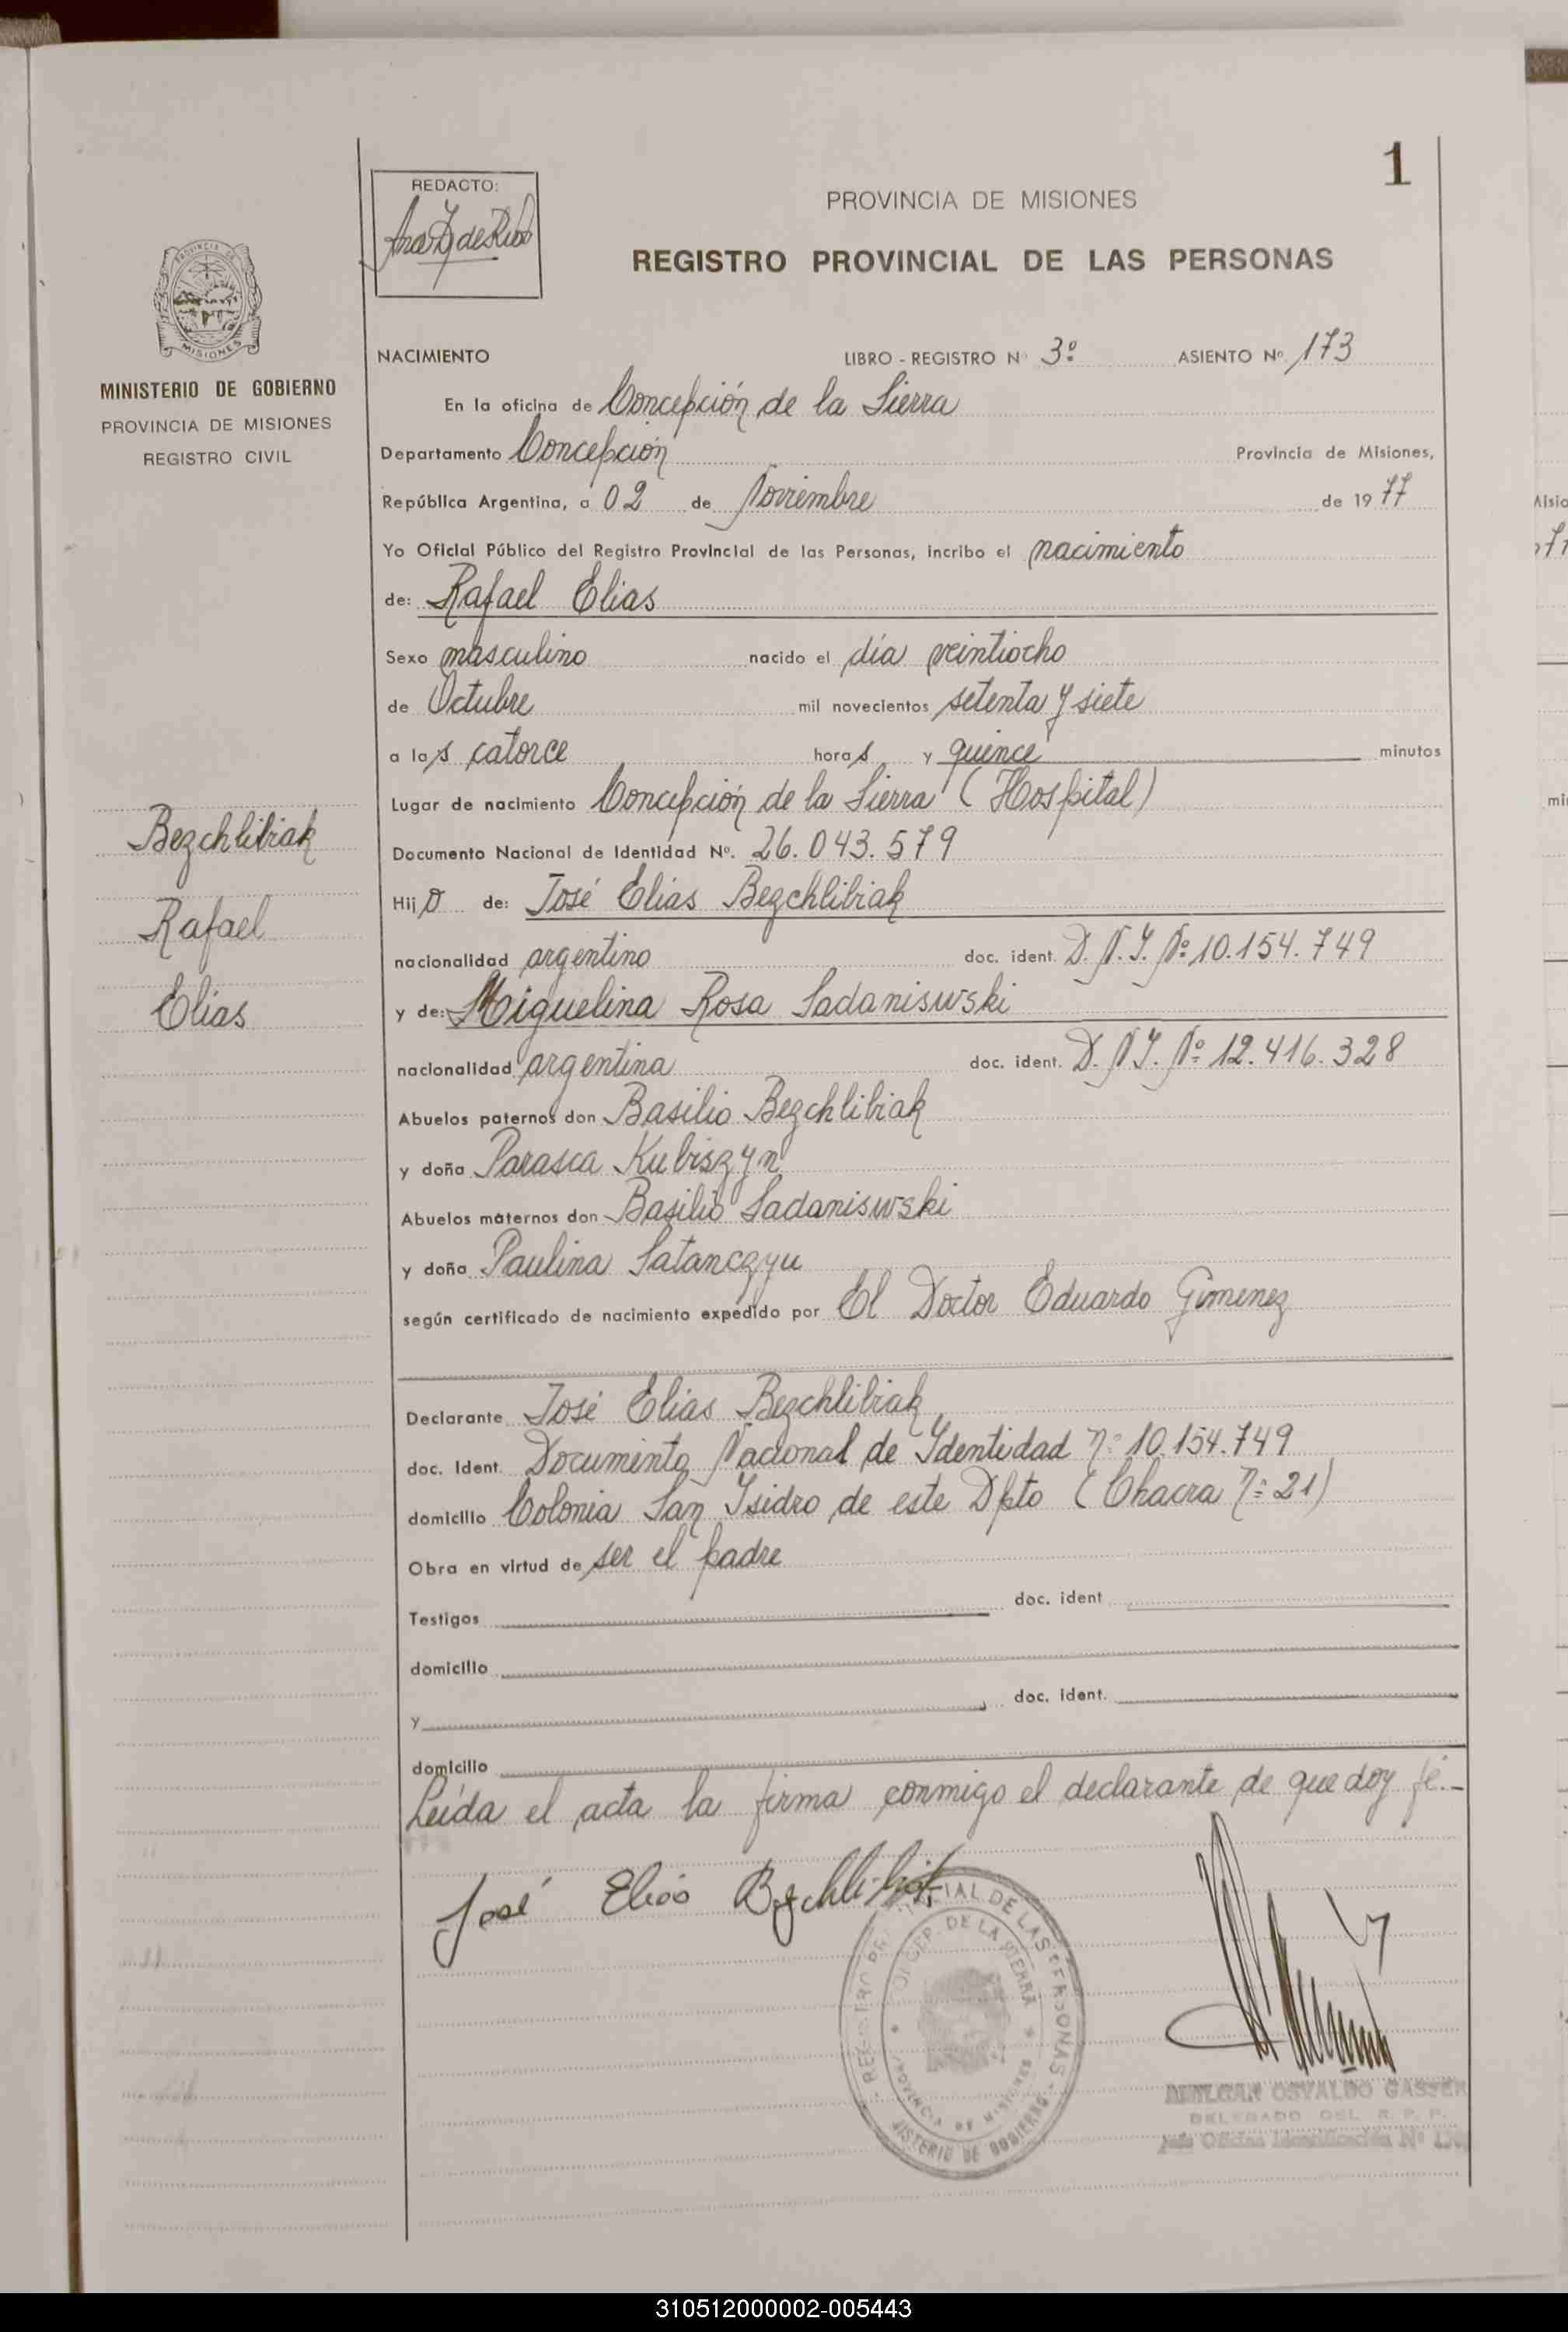 1
REDACTO:
PROVINCIA DE MISIONES
REGISTRO PROVINCIAL DE LAS PERSONAS
MISIONES
MINISTERIO DE GOBIERNO
PROVINCIA DE MISIONES
REGISTRO CIVIL
NACIMIENTO LIBRO - REGISTRO Nº 3º ASIENTO Nº 173
En la oficina de Concepción de la Sierra
Departamento Concepción Provincia de Misiones,
República Argentina, a 02 de Noviembre de 1977
Yo Oficial Público del Registro Provincial de las Personas, incribo el nacimiento
de: Rafael Elias
Sexo masculino nacido el día veintiocho
de Octubre mil novecientos setenta y siete
a las catorce horas y quince minutos
Lugar de nacimiento Concepción de la Sierra (Hospital)
Documento Nacional de Identidad Nº. 26.043.579
Hijo de: José Elias Bezchlibiak
nacionalidad argentino doc. ident. D.N.I. Nº 10.154.749
y de: Miguelina Rosa Sadaniswski
nacionalidad argentina doc. ident. D.N.I. Nº 12.416.328
Abuelos paternos don Basilio Bezchlibiak
y doña Parasca Kubiszyn
Abuelos maternos don Basilio Sadaniswski
y doña Paulina Satanczyu
según certificado de nacimiento expedido por El Doctor Eduardo Gimenez
Declarante José Elias Bezchlibiak
doc. Ident. Documento Nacional de Identidad nº 10.154.749
domicilio Colonia San Isidro de este Dpto (Chacra nº 21)
Obra en virtud de ser el padre
Testigos doc. ident
domicilio
y doc. ident.
domicilio
Leída el acta la firma conmigo el declarante de que doy fé.-
Bezchlibiak
Rafael
Elias
José Elias Bezchlibiak
OSVALDO GASSER
DELEGADO DEL R. P. P.
310512000002-005443